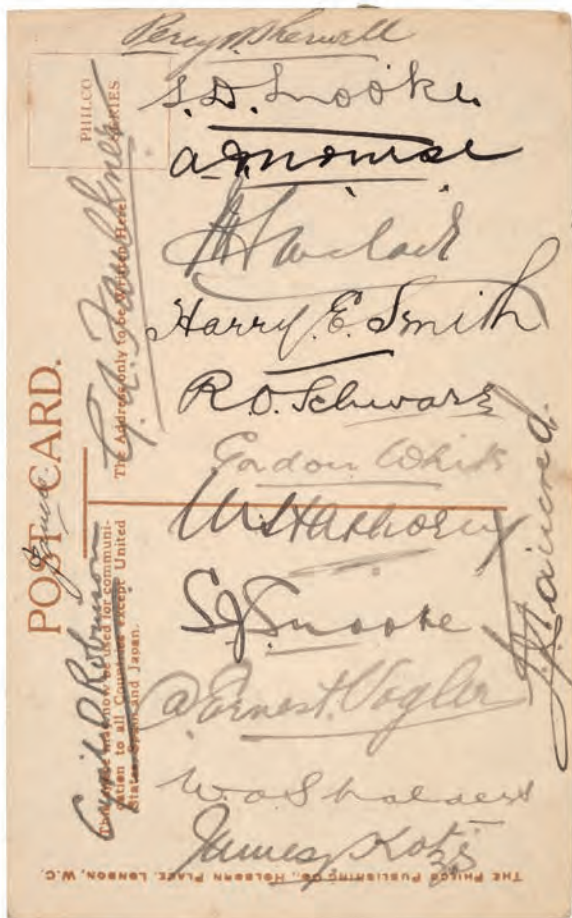 Percy W. Sherwell
S. D. Snooke.
A. D. Nourse
Sinclair
Harry. E. Smith
R. O. Schwarz
Gordon White
Hathorn
S. J. Snooke
A. Ernest Vogler
W. A. Shalders
James J. Kotzé
Tancred.
G. A. Faulkner
Cyril D Robinson
PHILCO
SERIES
POST CARD.
The Address only to be Written Here
This space may now be used for communi-
cation to all Countries except United
States, Spain and Japan.
THE PHILCO PUBLISHING CO., HOLBORN PLACE, LONDON, W.C.